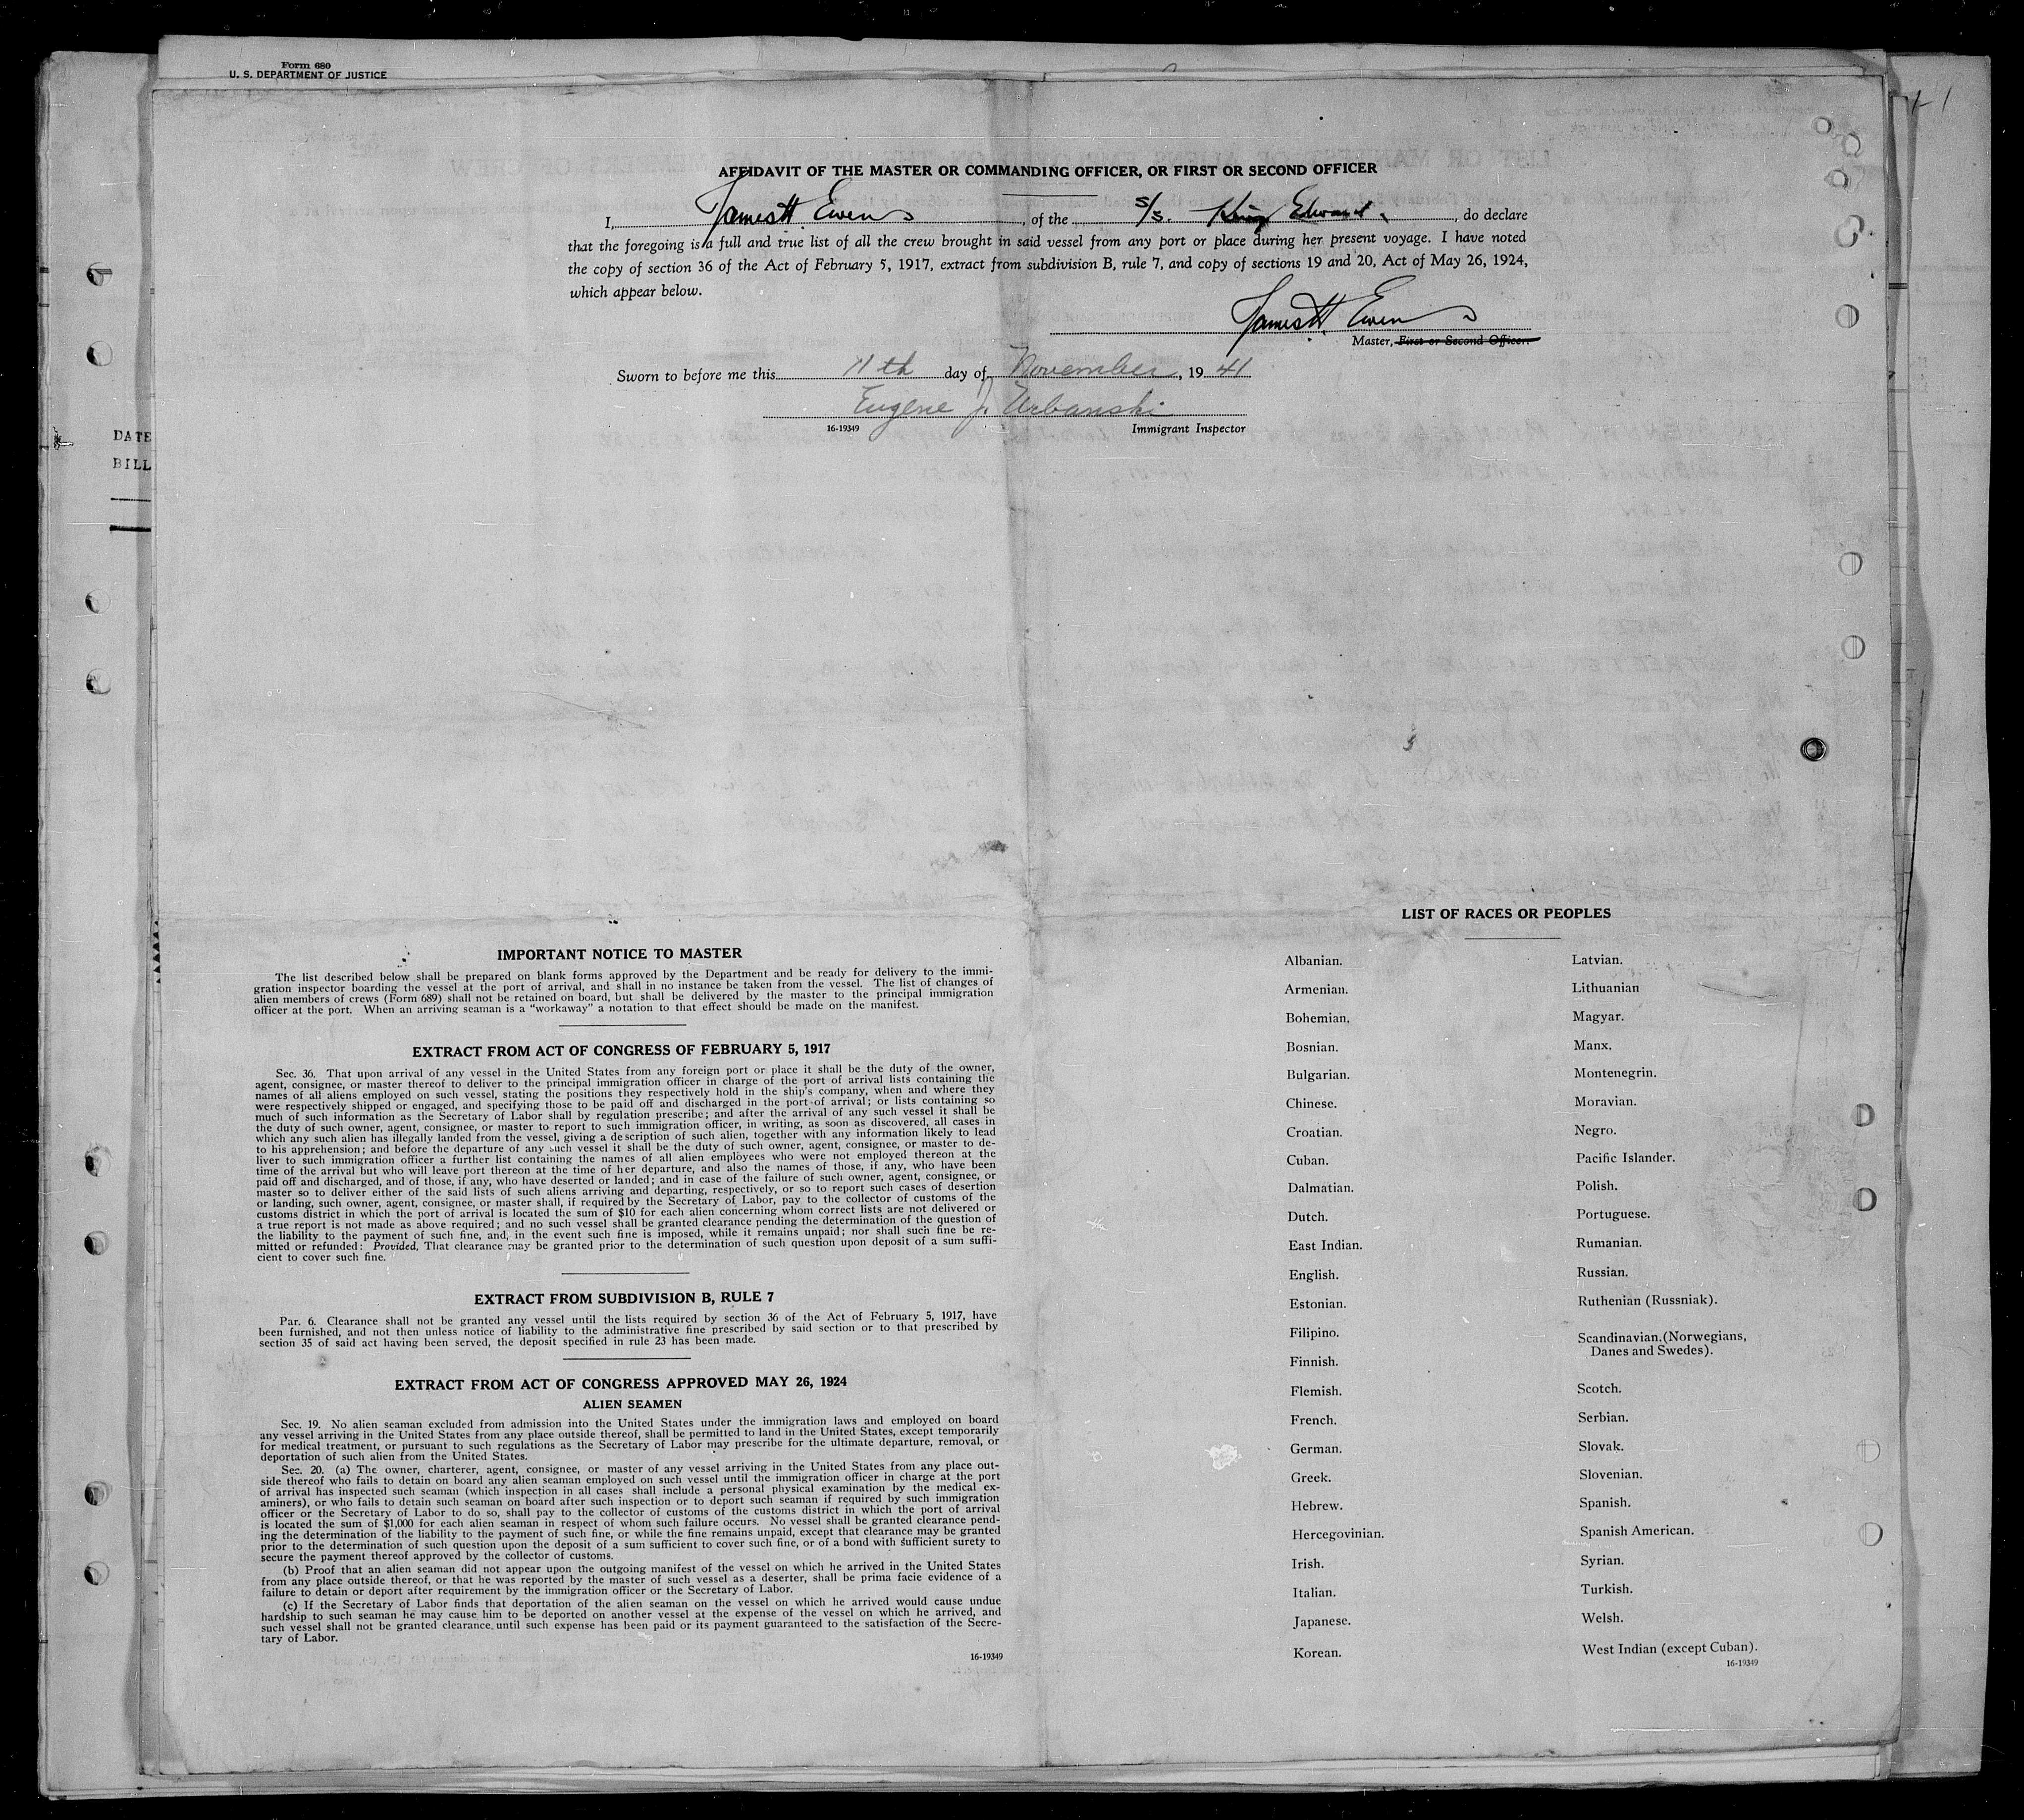 Form 680
U. S. DEPARTMENT OF JUSTICE
AFFIDAVIT OF THE MASTER OR COMMANDING OFFICER, OR FIRST OR SECOND OFFICER
I, James H. Ewens, of the S/S. King Edward, do declare
that the foregoing is a full and true list of all the crew brought in said vessel from any port or place during her present voyage. I have noted
the copy of section 36 of the Act of February 5, 1917, extract from subdivision B, rule 7, and copy of sections 19 and 20, Act of May 26, 1924,
which appear below.
James H. Ewens
Master, First or Second Officer.
Sworn to before me this 11th day of November, 1941
Eugene J. Urbanski
16-19349 Immigrant Inspector
DATE
BILL
IMPORTANT NOTICE TO MASTER
The list described below shall be prepared on blank forms approved by the Department and be ready for delivery to the immi-
gration inspector boarding the vessel at the port of arrival, and shall in no instance be taken from the vessel. The list of changes of
alien members of crews (Form 689) shall not be retained on board, but shall be delivered by the master to the principal immigration
officer at the port. When an arriving seaman is a "workaway" a notation to that effect should be made on the manifest.
EXTRACT FROM ACT OF CONGRESS OF FEBRUARY 5, 1917
Sec. 36. That upon arrival of any vessel in the United States from any foreign port or place it shall be the duty of the owner,
agent, consignee, or master thereof to deliver to the principal immigration officer in charge of the port of arrival lists containing the
names of all aliens employed on such vessel, stating the positions they respectively hold in the ship's company, when and where they
were respectively shipped or engaged, and specifying those to be paid off and discharged in the port of arrival; or lists containing so
much of such information as the Secretary of Labor shall by regulation prescribe; and after the arrival of any such vessel it shall be
the duty of such owner, agent, consignee, or master to report to such immigration officer, in writing, as soon as discovered, all cases in
which any such alien has illegally landed from the vessel, giving a description of such alien, together with any information likely to lead
to his apprehension; and before the departure of any such vessel it shall be the duty of such owner, agent, consignee, or master to de-
liver to such immigration officer a further list containing the names of all alien employees who were not employed thereon at the
time of the arrival but who will leave port thereon at the time of her departure, and also the names of those, if any, who have been
paid off and discharged, and of those, if any, who have deserted or landed; and in case of the failure of such owner, agent, consignee, or
master so to deliver either of the said lists of such aliens arriving and departing, respectively, or so to report such cases of desertion
or landing, such owner, agent, consignee, or master shall, if required by the Secretary of Labor, pay to the collector of customs of the
customs district in which the port of arrival is located the sum of $10 for each alien concerning whom correct lists are not delivered or
a true report is not made as above required; and no such vessel shall be granted clearance pending the determination of the question of
the liability to the payment of such fine, and, in the event such fine is imposed, while it remains unpaid; nor shall such fine be re-
mitted or refunded: Provided, That clearance may be granted prior to the determination of such question upon deposit of a sum suffi-
cient to cover such fine.
EXTRACT FROM SUBDIVISION B, RULE 7
Par. 6. Clearance shall not be granted any vessel until the lists required by section 36 of the Act of February 5, 1917, have
been furnished, and not then unless notice of liability to the administrative fine prescribed by said section or to that prescribed by
section 35 of said act having been served, the deposit specified in rule 23 has been made.
EXTRACT FROM ACT OF CONGRESS APPROVED MAY 26, 1924
ALIEN SEAMEN
Sec. 19. No alien seaman excluded from admission into the United States under the immigration laws and employed on board
any vessel arriving in the United States from any place outside thereof, shall be permitted to land in the United States, except temporarily
for medical treatment, or pursuant to such regulations as the Secretary of Labor may prescribe for the ultimate departure, removal, or
deportation of such alien from the United States.
Sec. 20. (a) The owner, charterer, agent, consignee, or master of any vessel arriving in the United States from any place out-
side thereof who fails to detain on board any alien seaman employed on such vessel until the immigration officer in charge at the port
of arrival has inspected such seaman (which inspection in all cases shall include a personal physical examination by the medical ex-
aminers), or who fails to detain such seaman on board after such inspection or to deport such seaman if required by such immigration
officer or the Secretary of Labor to do so, shall pay to the collector of customs of the customs district in which the port of arrival
is located the sum of $1,000 for each alien seaman in respect of whom such failure occurs. No vessel shall be granted clearance pend-
ing the determination of the liability to the payment of such fine, or while the fine remains unpaid, except that clearance may be granted
prior to the determination of such question upon the deposit of a sum sufficient to cover such fine, or of a bond with sufficient surety to
secure the payment thereof approved by the collector of customs.
(b) Proof that an alien seaman did not appear upon the outgoing manifest of the vessel on which he arrived in the United States
from any place outside thereof, or that he was reported by the master of such vessel as a deserter, shall be prima facie evidence of a
failure to detain or deport after requirement by the immigration officer or the Secretary of Labor.
(c) If the Secretary of Labor finds that deportation of the alien seaman on the vessel on which he arrived would cause undue
hardship to such seaman he may cause him to be deported on another vessel at the expense of the vessel on which he arrived, and
such vessel shall not be granted clearance until such expense has been paid or its payment guaranteed to the satisfaction of the Secre-
tary of Labor.
16-19349
LIST OF RACES OR PEOPLES
Albanian.
Armenian.
Bohemian.
Bosnian.
Bulgarian.
Chinese.
Croatian.
Cuban.
Dalmatian.
Dutch.
East Indian.
English.
Estonian.
Filipino.
Finnish.
Flemish.
French.
German.
Greek.
Hebrew.
Hercegovinian.
Irish.
Italian.
Japanese.
Korean.
Latvian.
Lithuanian
Magyar.
Manx.
Montenegrin.
Moravian.
Negro.
Pacific Islander.
Polish.
Portuguese.
Rumanian.
Russian.
Ruthenian (Russniak).
Scandinavian.(Norwegians,
Danes and Swedes).
Scotch.
Serbian.
Slovak.
Slovenian.
Spanish.
Spanish American.
Syrian.
Turkish.
Welsh.
West Indian (except Cuban).
16-19349